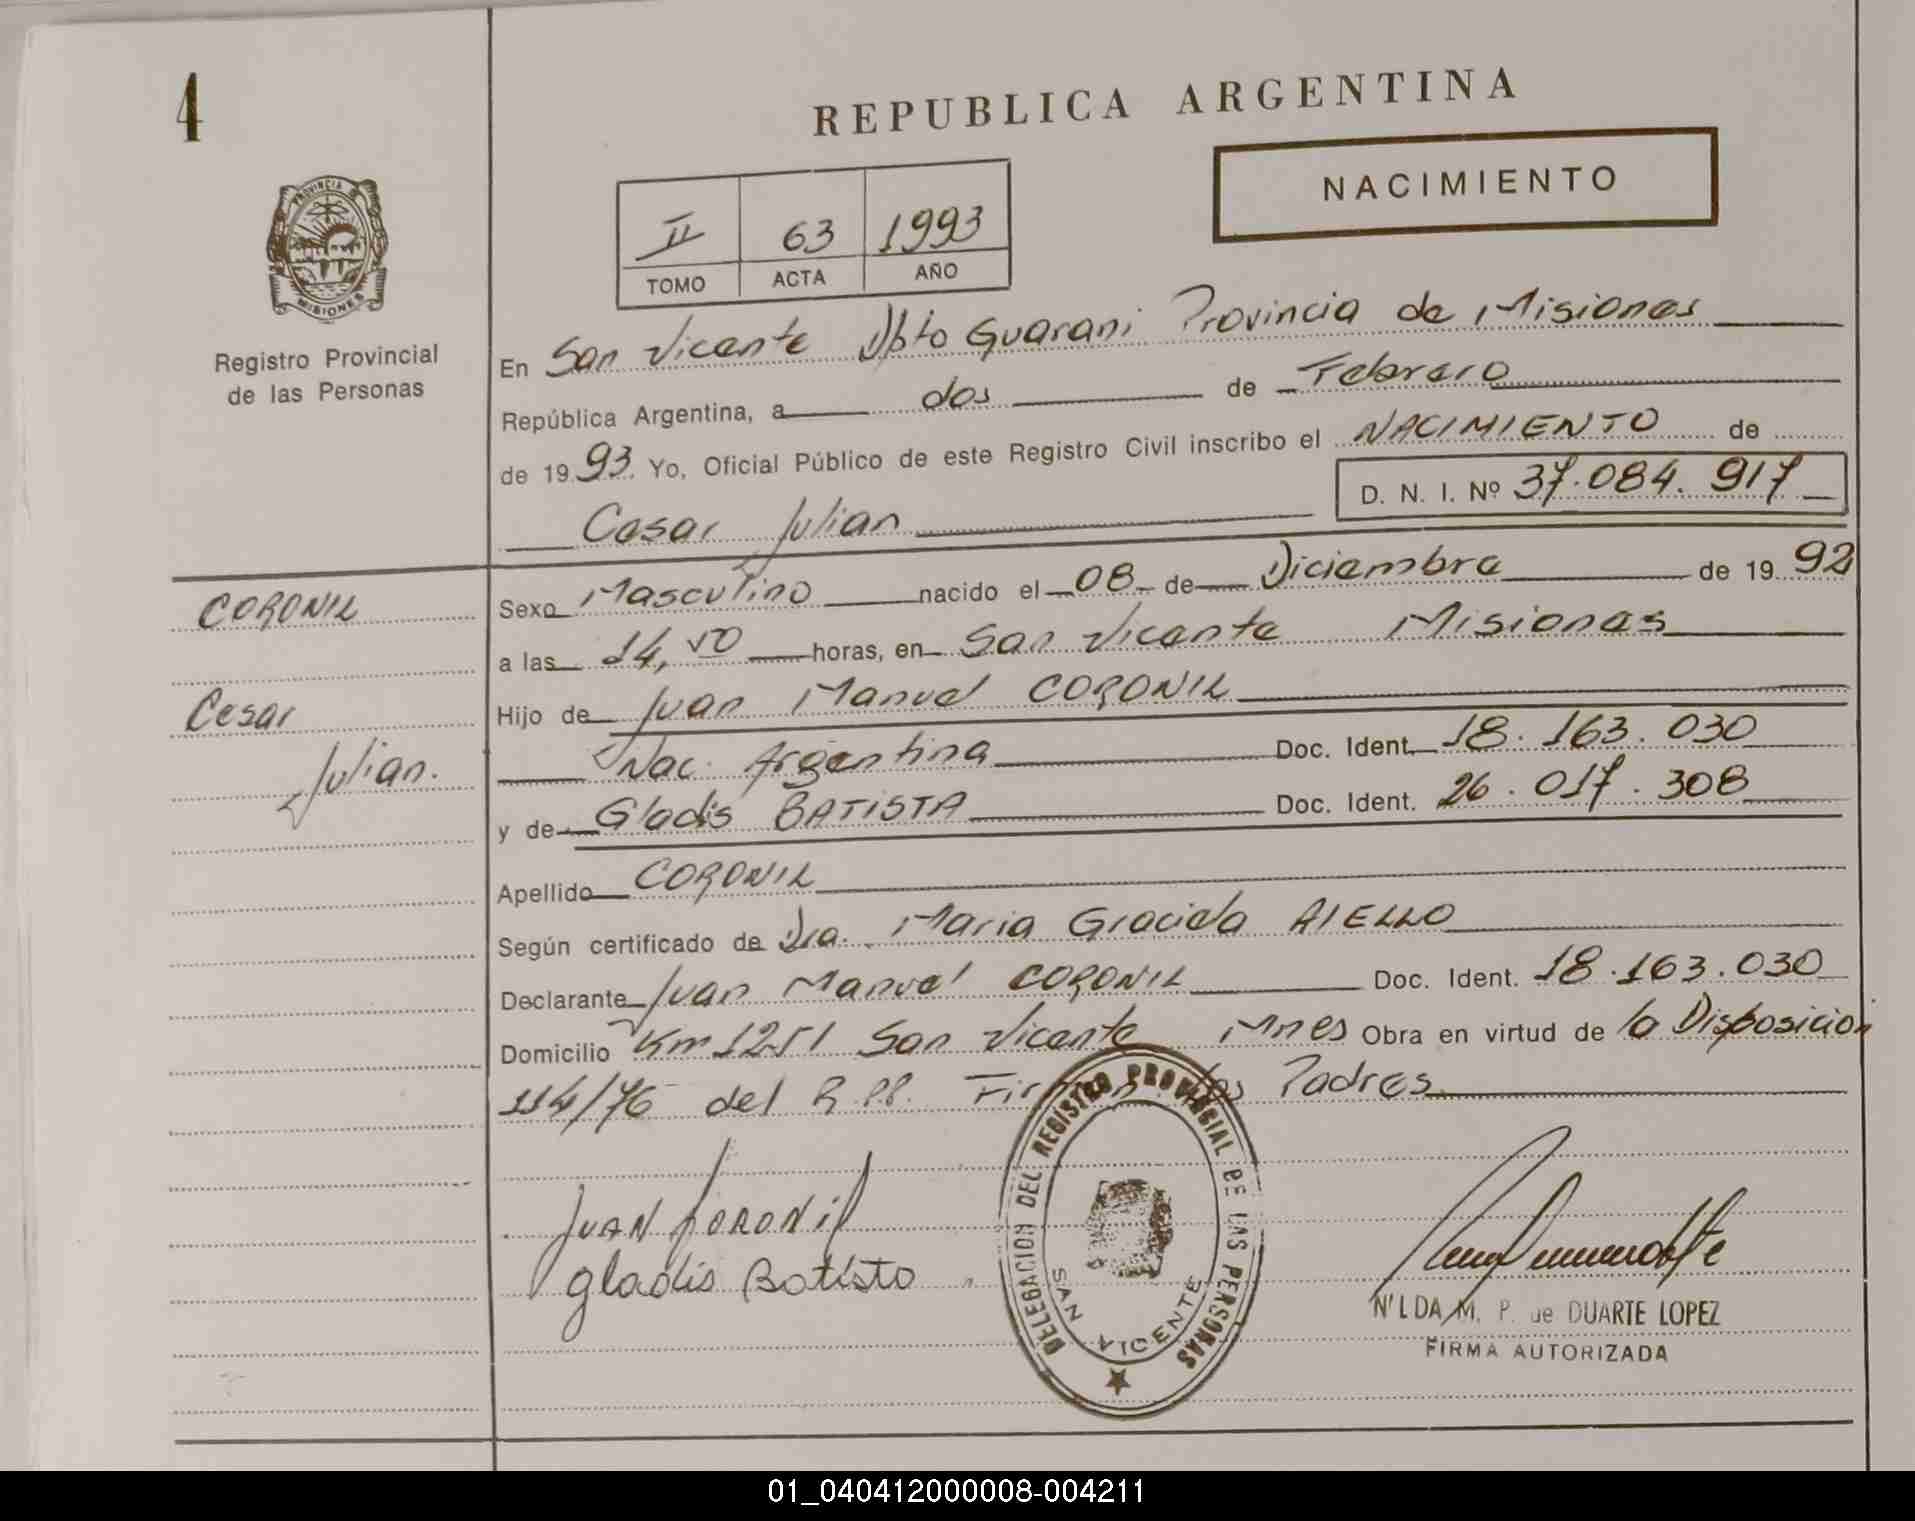 4
REPUBLICA ARGENTINA
NACIMIENTO
II 63 1993
TOMO ACTA AÑO
PROVINCIA DE
MISIONES
Registro Provincial
de las Personas
En San Vicente Dpto Guarani Provincia de Misiones
República Argentina, a dos de Febrero
de 1993. Yo, Oficial Público de este Registro Civil inscribo el NACIMIENTO de
D. N. I. Nº 37.084.917
Cesar Julian
CORONIL
Cesar
Julian.
Sexo Masculino nacido el 08 de Diciembre de 1992
a las 14,50 horas, en San Vicente Misiones
Hijo de Juan Manuel CORONIL
Nac. Argentina Doc. Ident. 18.163.030
y de Gladis BATISTA Doc. Ident. 26.017.308
Apellido CORONIL
Según certificado de Dra. Maria Graciela AIELLO
Declarante Juan Manuel CORONIL Doc. Ident. 18.163.030
Domicilio Km 1251 San Vicente Mnes Obra en virtud de la Disposicion
114/76 del R.PP. Firman los Padres
JUAN CORONIL
gladis Batista
DELEGACION DEL REGISTRO PROVINCIAL DE LAS PERSONAS
SAN VICENTE
N'LDA M. P. de DUARTE LOPEZ
FIRMA AUTORIZADA
01_040412000008-004211